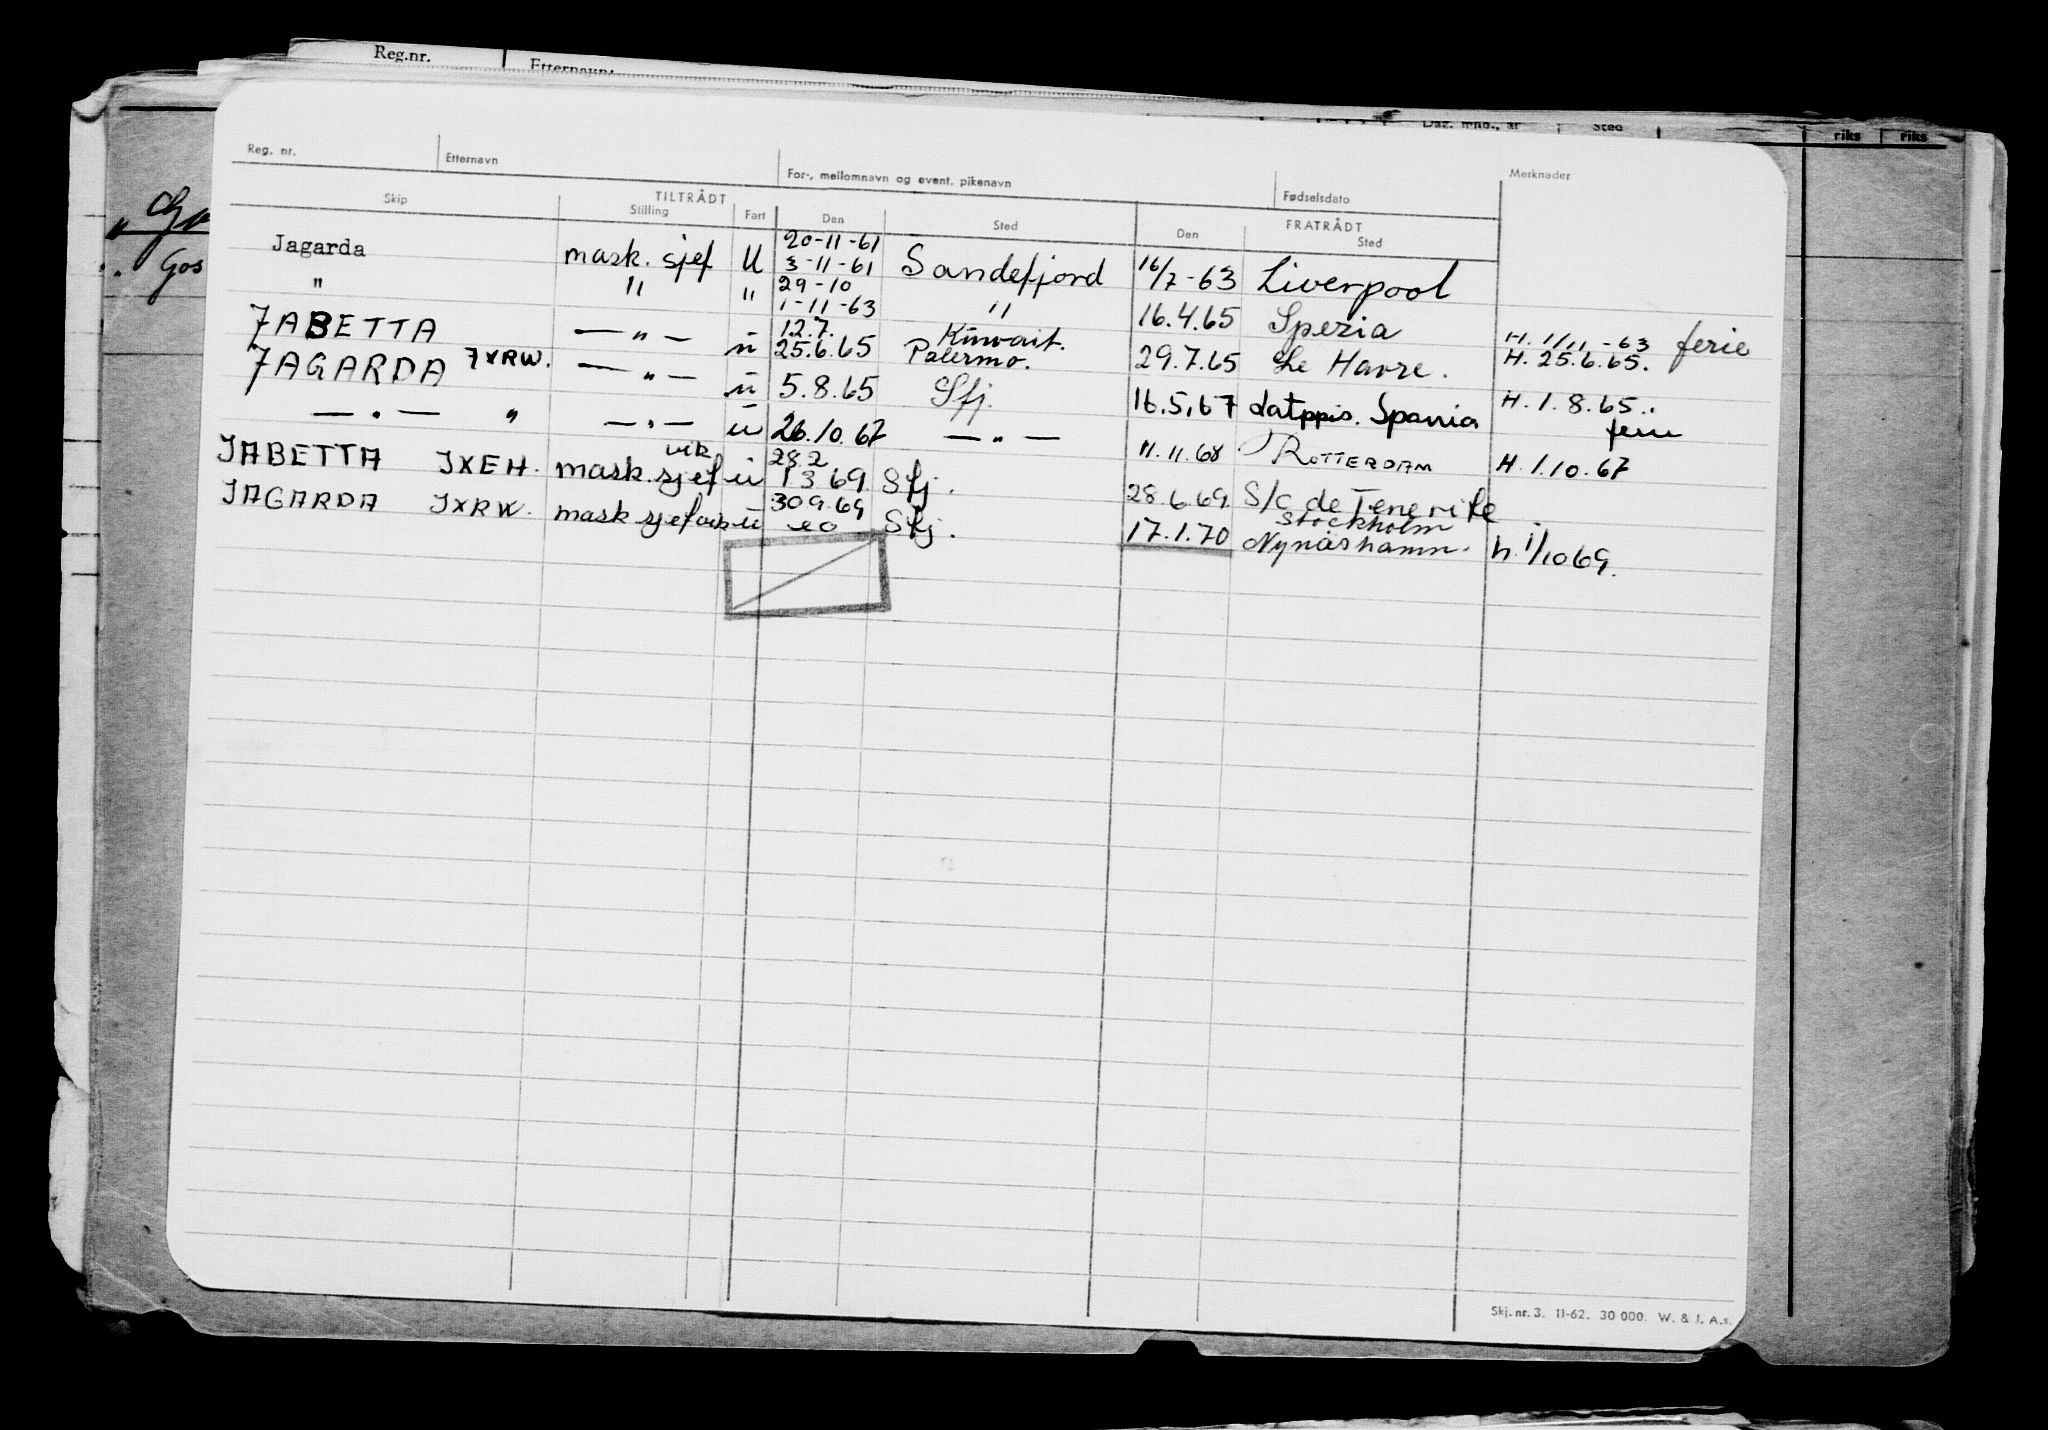 Reg.nr. Etternavn:
Dag, mnd., år Sted riks riks
Reg. nr. Etternavn For-, mellomnavn og event. pikenavn Fødselsdato Merknader
Skip TILTRÅDT Stilling Fart Den Sted FRATRÅDT Den Sted
20-11-61
Jagarda mask. sjef U 3-11-61 Sandefjord 16/7-63 Liverpool
29-10
" " " 1-11-63 " 16.4.65 Spezia H. 1/11-63 ferie
12.7. Kuwait.
JABETTA — " — u 25.6.65 Palermo. 29.7.65 Le Havre. H. 25.6.65.
JAGARDA JXRW. — " — u 5.8.65 Sfj. 16.5.67 Spania H. 1.8.65. ferie
— " — " — " — u 26.10.67 — " — 11.11.68 ROTTERDAM H. 1.10.67
vik 28.2
JABETTA JXEH. mask.sjef u 1 3 69 Sfj. 28.6.69 S/c de Tenerife
30.9.69 Stockholm
JAGARDA JXRW. mask sjef u Sfj. 17.1.70 Nynäshamn. h. 1/10 69.
Gos
Skj. nr. 3. 11-62. 30 000. W. & J. A.s.